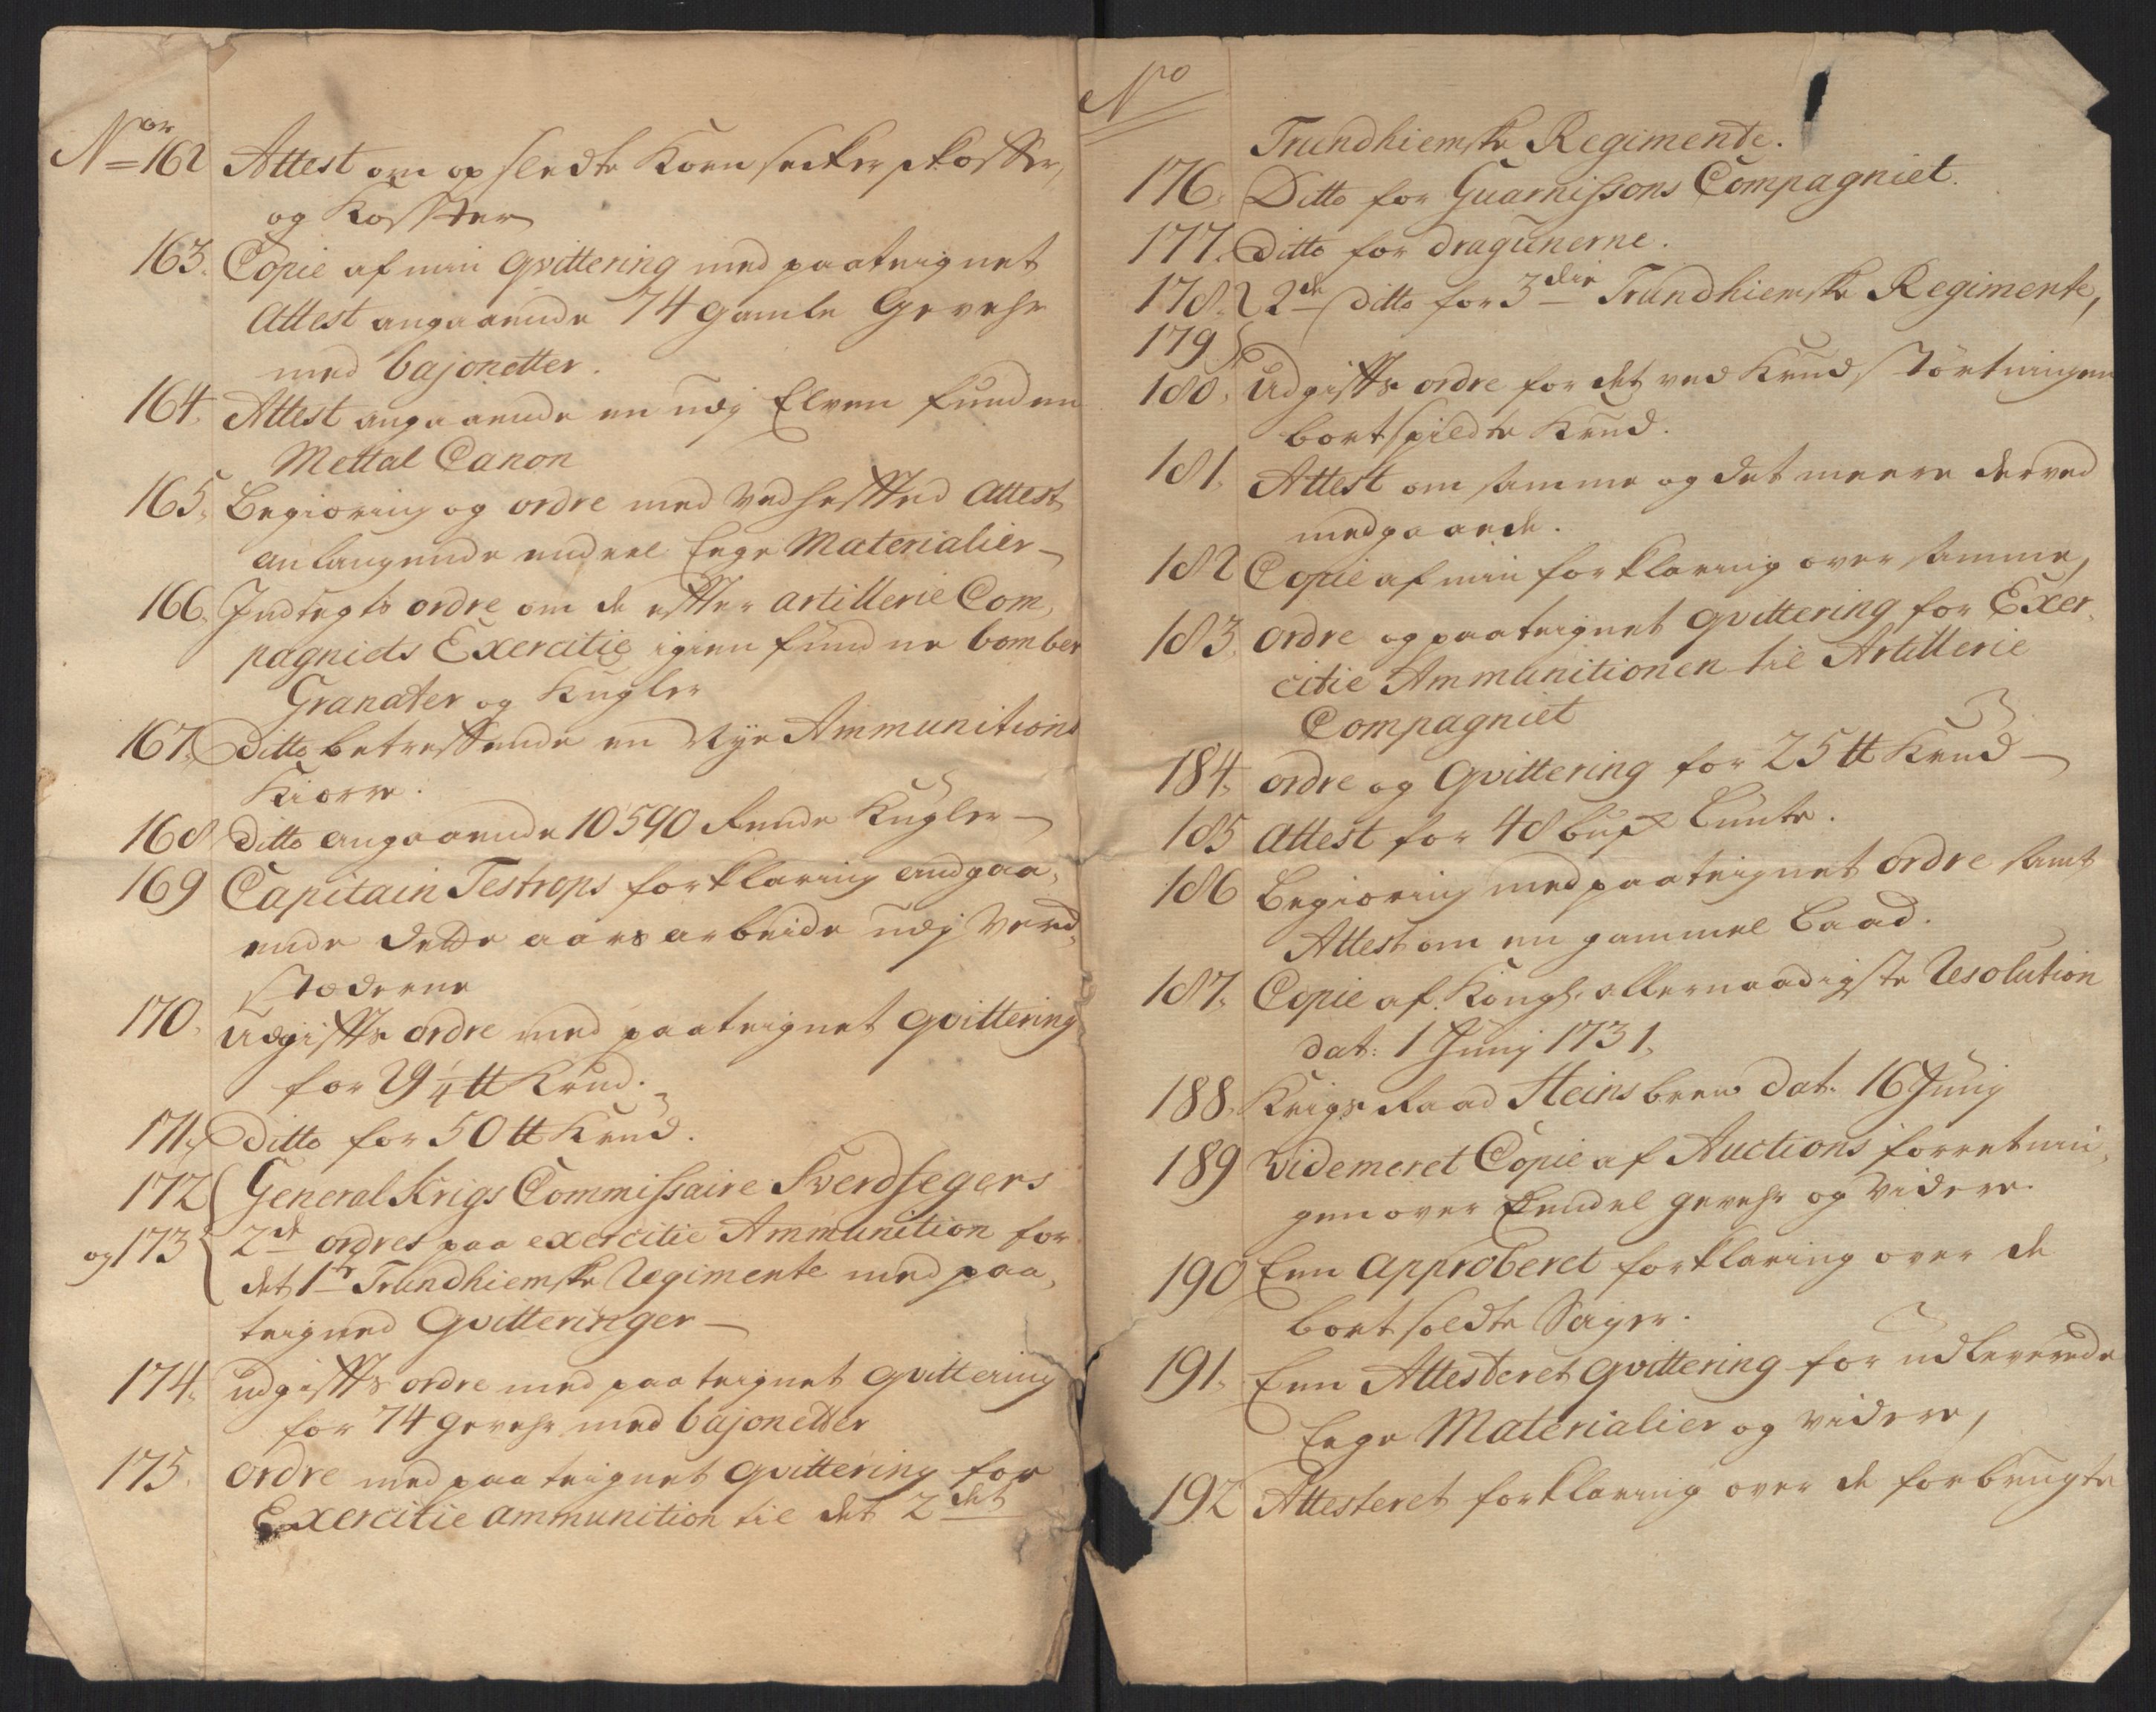 Nor 162 Attest om op sledte Korn secker skoffer,
og Koster
163. Copie af min qvittering med paateignet
Attest angaaende 74 gamle Gevehr
med bajonetter.
164. Attest angaaende en udj Elven funden
Mettal Canon
165. Begiæring og ordre med Vedhefftted attest
anlangende endeel Eege Materialier
166. Indtegts ordre om de effter artillerie Com¬
pagniets Exercitie igien fundne bomber
Granater og Kugler
167. Ditto betreffende en Nye Ammunitions
Kiærre.
168 ditto angaaende 10590 runde Kugler
169 Capitain Testrops forklaring andgaa¬
ende dette aars arbeide udj Verck¬
stæderne
170. Udgiffts ordre med paateignet qvittering
for 9 1/4 tt Krud.
171. Ditto for 50 tt Krud.
172 General Krigs Commissaire Sverdfegers
og 173 2de ordres paa exercitie Ammunition for
det 1te Trundhiemske Regimente med paa¬
teigned Qvitteringer
174. udgiffts ordre med paateignet qvittering
for 74 gevehr med bajonetter
175. Ordre med paateignet qvittering for
Exercitie ammunition til det 2det
No
Trundhiemske Regimente.
176. Ditto for Guarnissons Compagniet.
177. Ditto for dragunerne.
178. 2de ditto for 3die Trundhiemske Regimente,
179
180. Udgiffts ordre for det ved Krud störtningen
bortspildte Krud.
181. Attest om samme og det meere derved
medgaaede.
182 Copie af min forklaring over samme,
183. Ordre og paateignet qvittering for Exer¬
citie Ammunitionen til Artillerie
Compagniet
184. ordre og Qvittering for 25 tt Krud
185 Attest for 48 bux Lunte.
186 Begiæring med paateignet ordre samt
Attest om en gammel Baad.
187. Copie af Kongl. allernaadigste Resolution
dat: 1 Junij 1731.
188. Krigs Raad Heins brew dat. 16 Junij
189 Videmeret Copie af Auctions forretnin¬
gen over Eendel gevehr og videre.
190 Enn Approberet forklaring over de
bortsoldte Sager.
191. Enn Attesteret qvittering for udleverede
Eege Materialier og videre,
192 Attesteret forklaring over de forbrugte